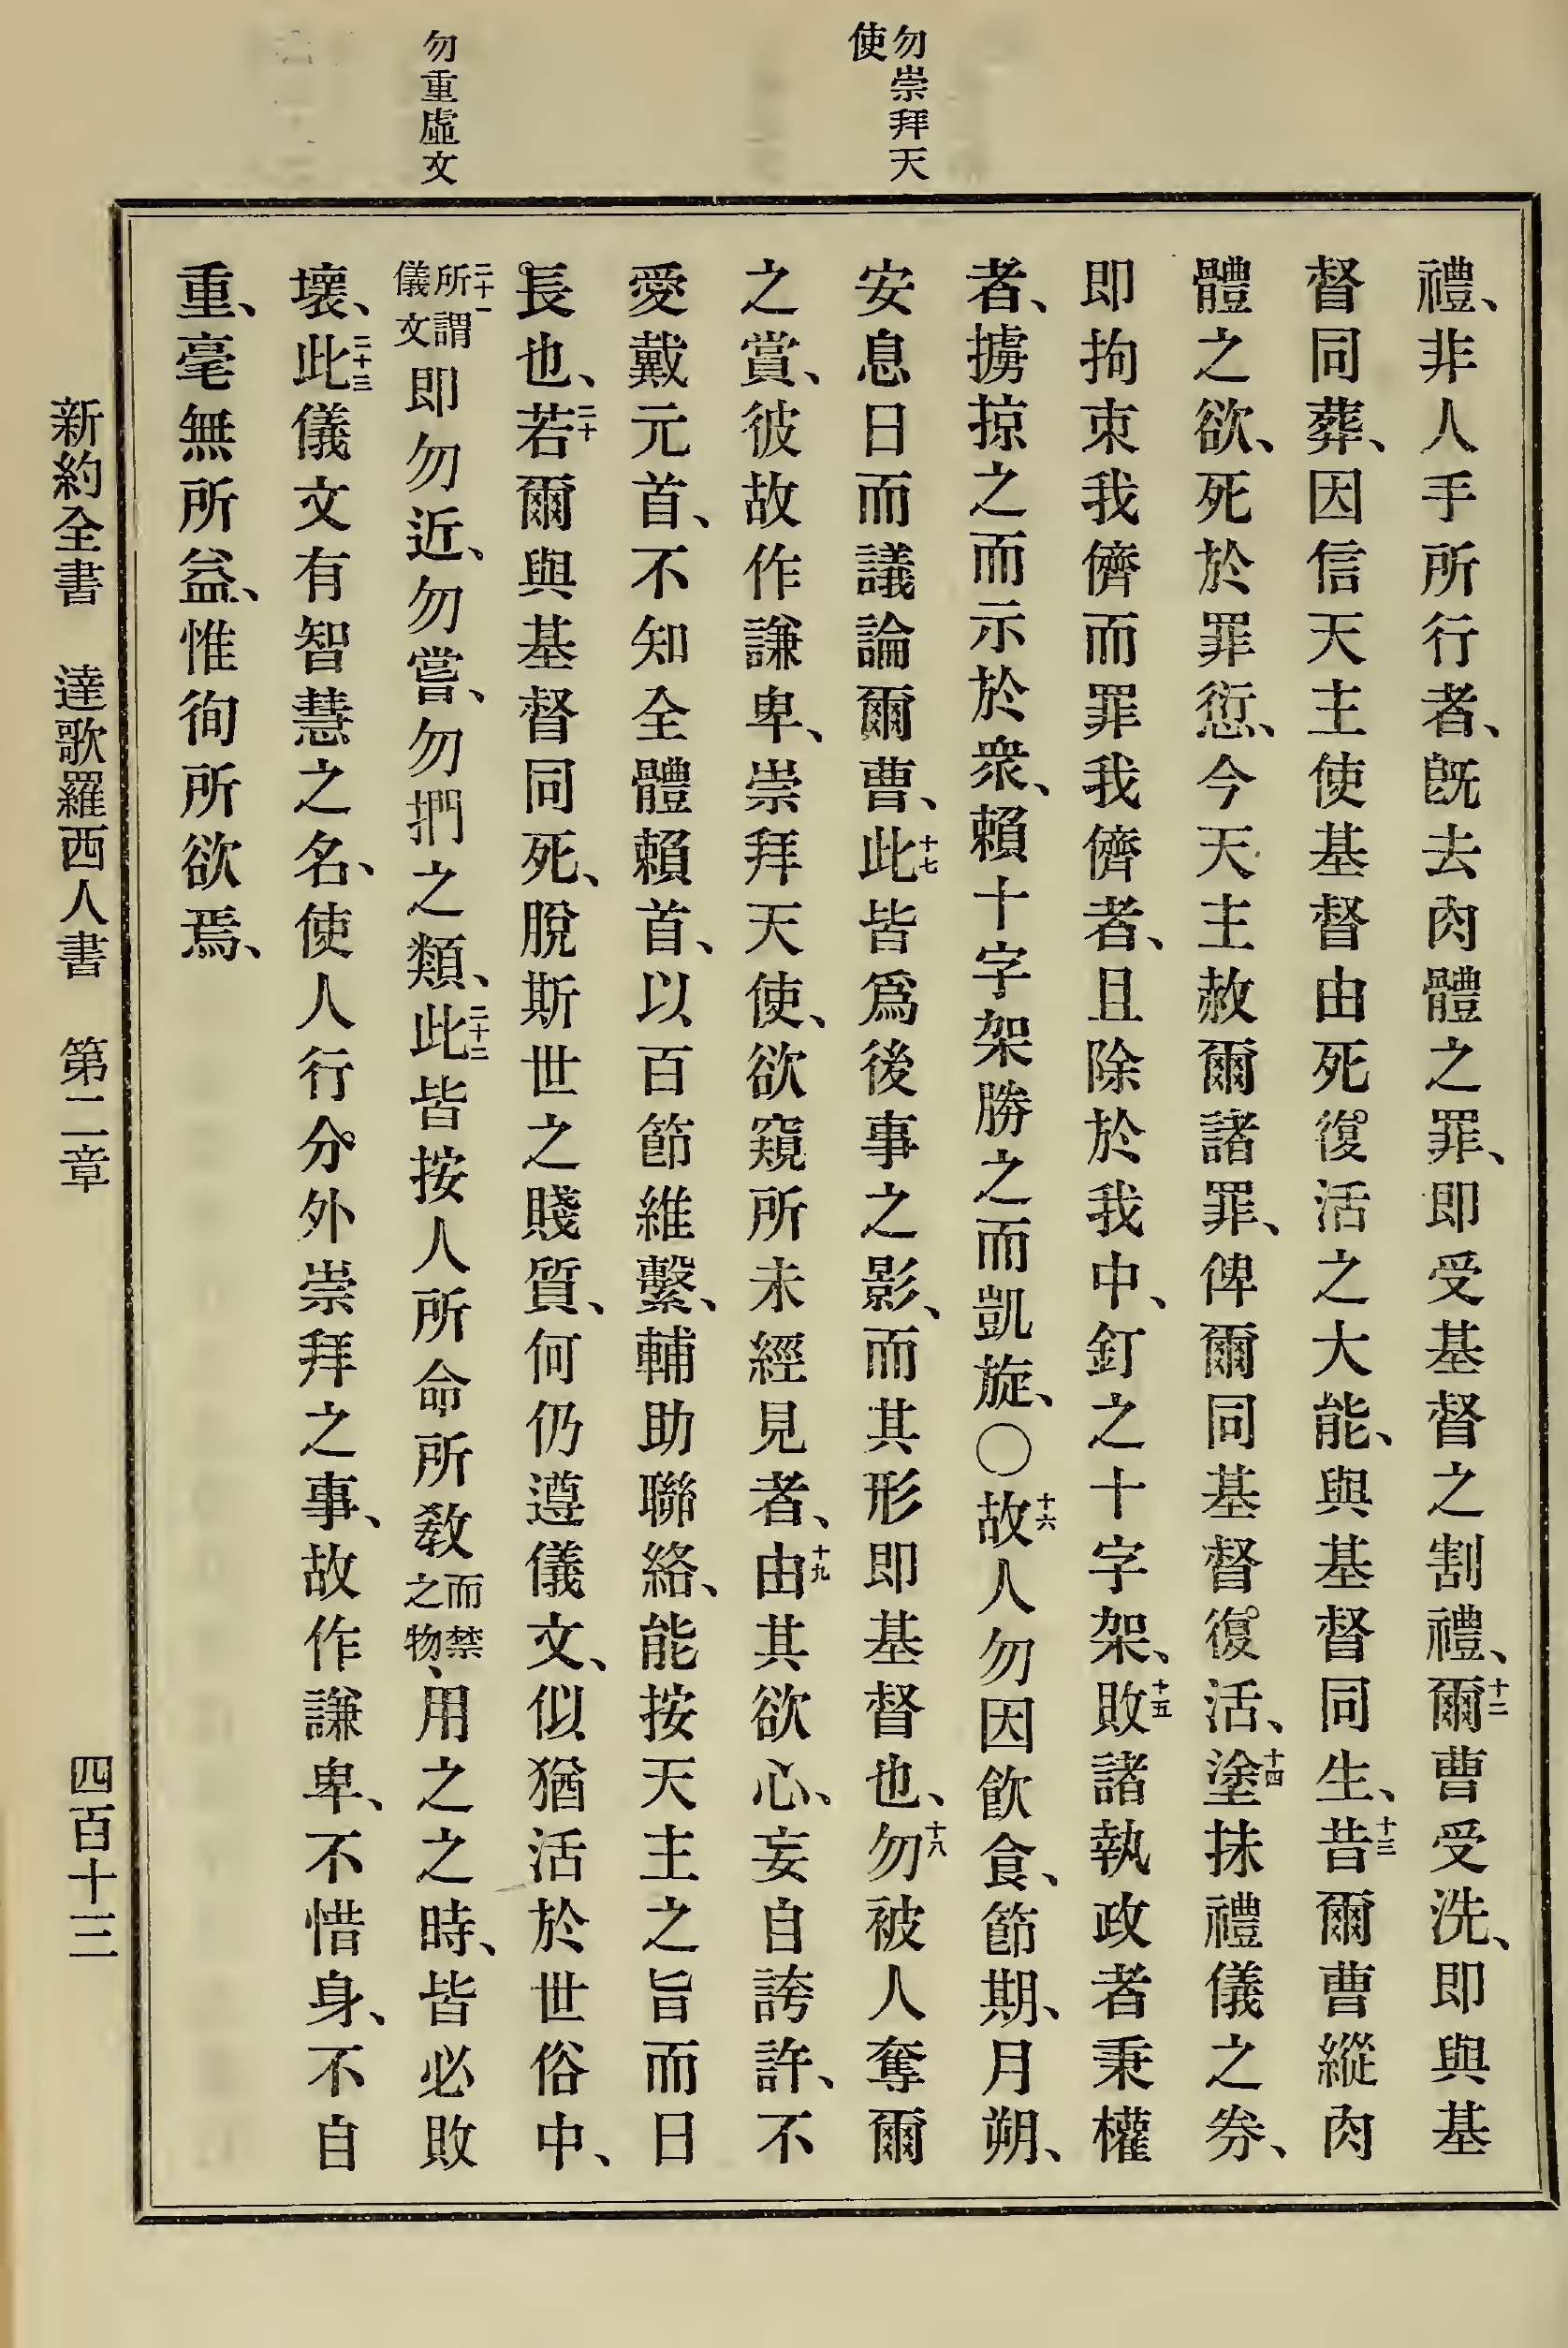 勿崇拜天
使
勿重虛文
禮、非人手所行者、既去肉體之罪、即受基督之割禮、十二爾曹受洗、即與基
督同葬、因信天主使基督由死復活之大能、與基督同生、十三昔爾曹縱肉
體之欲、死於罪愆、今天主赦爾諸罪、俾爾同基督復活、十四塗抹禮儀之券、
即拘束我儕而罪我儕者、且除於我中、釘之十字架、十五敗諸執政者秉權
者、擄掠之而示於衆、賴十字架勝之而凱旋、〇十六故人勿因飲食、節期、月朔、
安息日而議論爾曹、十七此皆爲後事之影、而其形即基督也、十八勿被人奪爾
之賞、彼故作謙卑、崇拜天使、欲窺所未經見者、十九由其欲心、妄自誇許、不
愛戴元首、不知全體賴首、以百節維繫、輔助聯絡、能按天主之旨而日
長也、二十若爾與基督同死、脫斯世之賤質、何仍遵儀文、似猶活於世俗中、
二十一所謂儀文即勿近、勿嘗、勿捫之類、二十二此皆按人所命所教而禁之物、用之之時、皆必敗
壞、二十三此儀文有智慧之名、使人行分外崇拜之事、故作謙卑、不惜身、不自
重、毫無所益、惟徇所欲焉、
新約全書 達歌羅西人書 第二章 四百十三